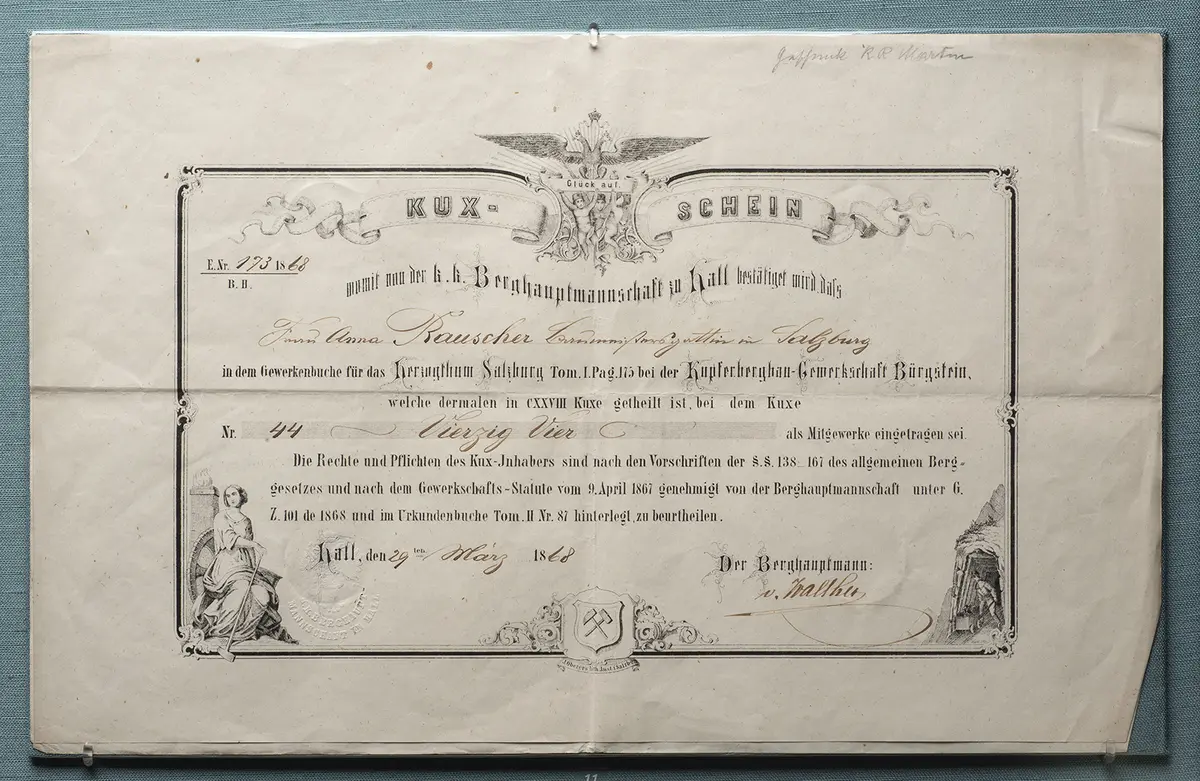 R. R. Marton
Glück auf.
KUX-SCHEIN
E. Nr. 173 1868
B. H.
womit von der k. k. Berghauptmannschaft zu Hall bestätiget wird dass
Frau Anna Rauscher Baumeistersgattin in Salzburg
in dem Gewerkenbuche für das Herzogthum Salzburg Tom. I. Pag. 175 bei der Kupferbergbau-Gewerkschaft Bürgstein,
welche dermalen in CXXVIII Kuxe getheilt ist, bei dem Kuxe
Nr. 44 Vierzig Vier als Mitgewerke eingetragen sei.
Die Rechte und Pflichten des Kux-Jnhabers sind nach den Vorschriften der §.§. 138-167 des allgemeinen Berg-
gesetzes und nach dem Gewerkschafts-Statute vom 9. April 1867 genehmigt von der Berghauptmannschaft unter G.
Z. 101 de 1868 und im Urkundenbuche Tom. II Nr. 87 hinterlegt, zu beurtheilen.
Hall, den 29ten März 1868
Der Berghauptmann:
v. Walther
11